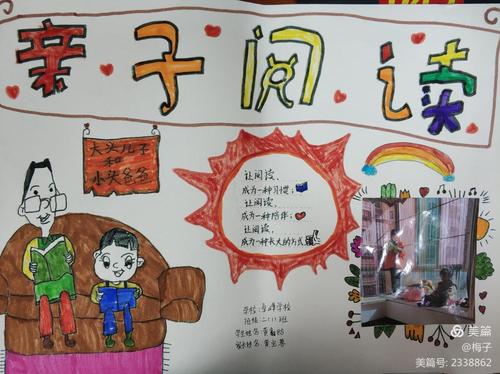 亲子阅读
大头儿子
和
小头爸爸
让阅读，
成为一种习惯；
让阅读，
成为一种陪伴；
让阅读，
成为一种长大的方式
学校：
班级：二(1)班
学生姓名：黄
家长姓名：黄
美篇
@梅子
美篇号: 2338862